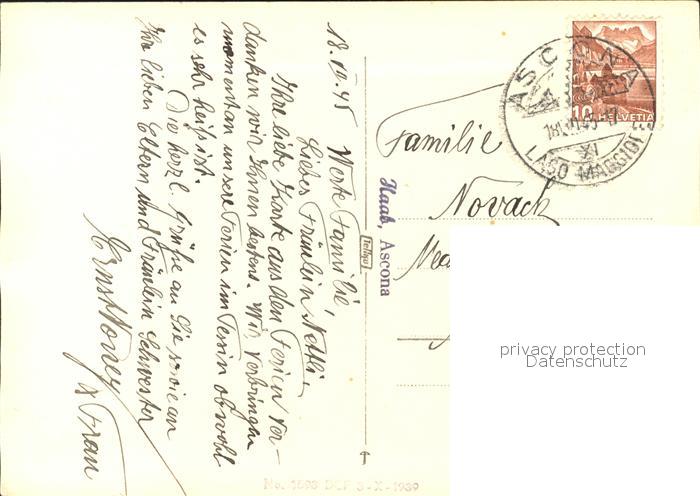 18. VII. 45
Werte Familie,
Liebes Fräulein Nettli,
Ihre liebe Karte aus den Ferien ver-
danken wir Ihnen bestens. Wir verbringen
momentan unsere Ferien im Tessin obwohl
es sehr heiss ist.
Die herzl. Grüße an Sie sowie an
Ihre lieben Eltern und Fräulein Schwester
Ernst
& Frau
Familie
Novack
Haab, Ascona
ASCONA
LAGO MAGGIORE
10 HELVETIA
privacy protection
Datenschutz
No. 1698 DCP 3-X-1939